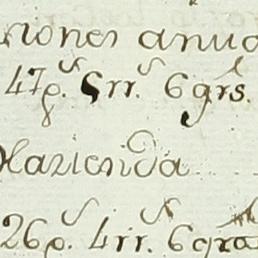 nones anua
47p.s 5rr.s 6grs.
Hazienda
26p.s 4rr.s 6gra